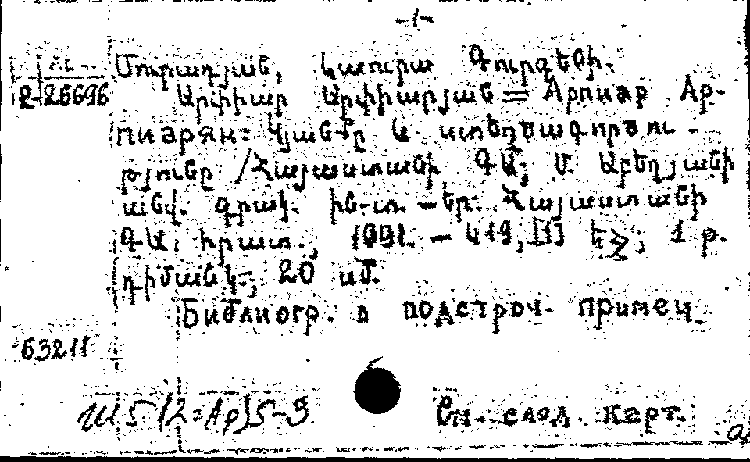 -1-
Մուրադյան, Լաուրա Գուրգենի.
2-26696
Արփիար Արփիարյան = Арпиар Ар-
пиарян: Կյանքը և ստեղծագործու-
թյունը /Հայաստանի ԳԱ; Մ. Աբեղյանի
անվ. գրակ. ինստ. - Եր. Հայաստանի
ԳԱ. հրատ., 1991. - 419, [1] էջ; 1 թ.
դիմանկ.; 20 սմ.
Библиогр. в подстроч. примеч.
63211
Ш5(2=Ар)5-9
См. след. карт.